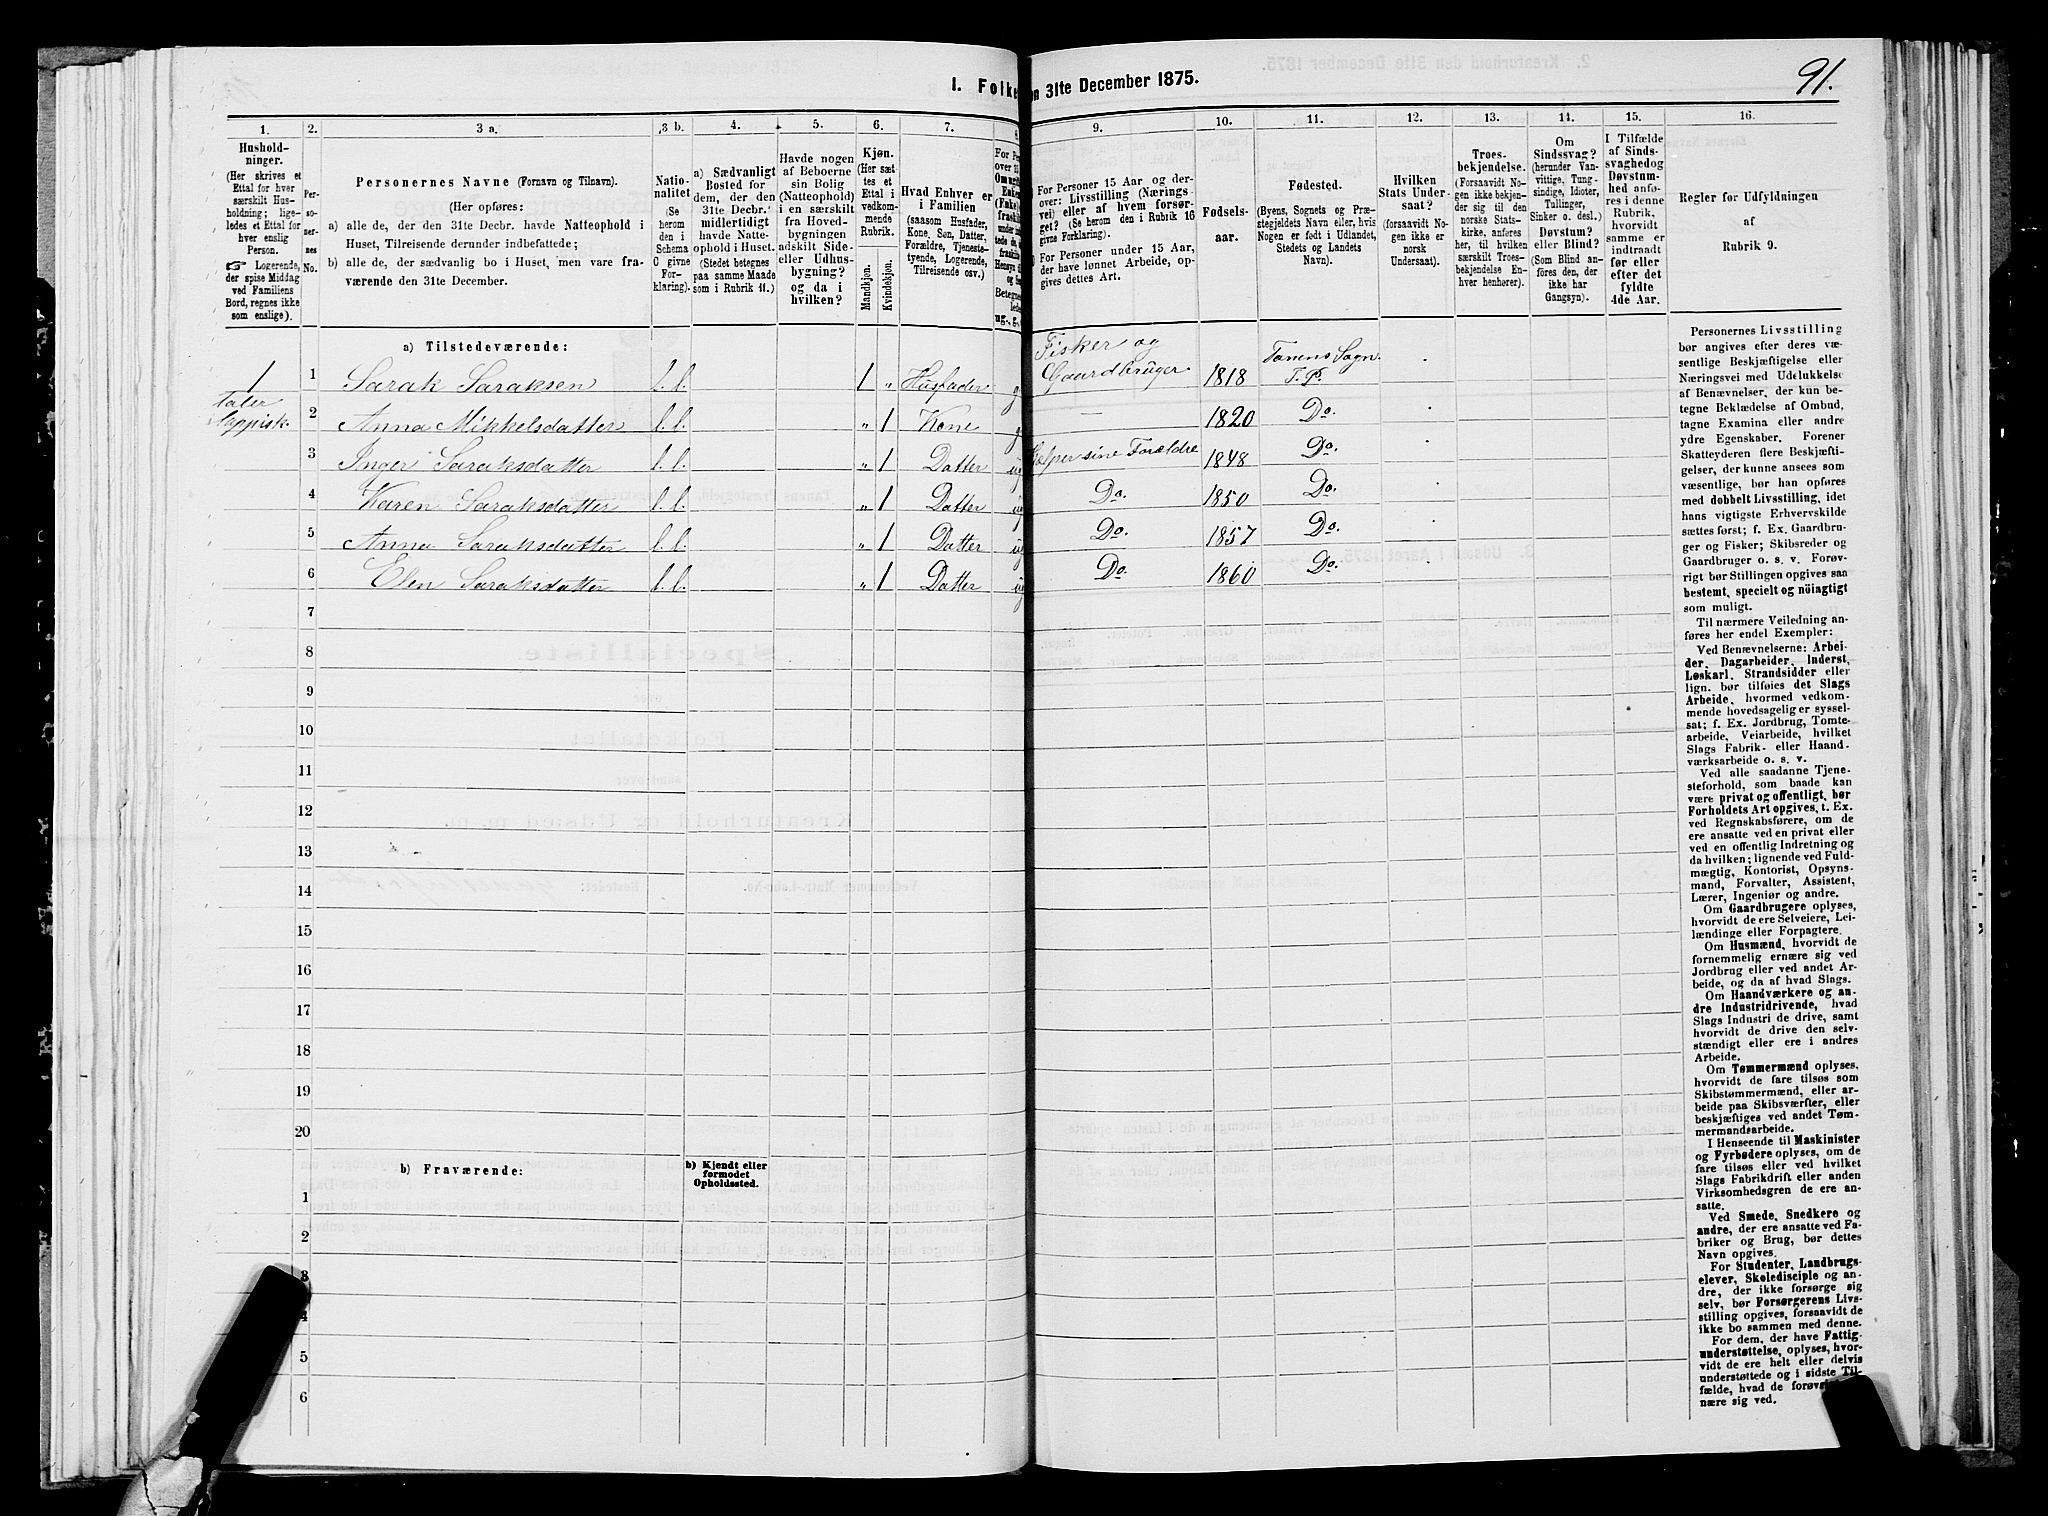 91.
I. Folke
on 31te December 1875.
1.
Hushold-
ninger.
(Her skrives et
Ettal for hver
særskilt Hus-
holdning; lige-
ledes et Ettal for
hver enslig
Person.
☞ Logerende,
der spise Middag
ved Familiens
Bord, regnes ikke
som enslige).
2.
Per-
so-
ner-
nes
No.
3 a.
Personernes Navne (Fornavn og Tilnavn).
(Her opføres:
a) alle de, der den 31te Decbr. havde Natteophold i
Huset, Tilreisende derunder indbefattede;
b) alle de, der sædvanlig bo i Huset, men vare fra-
værende den 31te December.
3 b.
Natio-
nalitet
(Se
herom
den i
Schema
C givne
For-
klaring).
4.
a) Sædvanligt
Bosted for
dem, der den
31te Decbr.
midlertidigt
havde Natte-
ophold i Huset.
(Stedet betegnes
paa samme Maade
som i Rubrik 11.)
5.
Havde nogen
af Beboerne
sin Bolig
(Natteophold)
i en særskilt
fra Hoved-
bygningen
adskilt Side-
eller Udhus-
bygning?
og da i
hvilken?
6.
Kjøn.
(Her sæt-
tes et
Ettal i
vedkom-
mende
Rubrik.
Mandkjøn.
Kvindekjøn.
7.
Hvad Enhver er
i Familien
(saasom Husfader,
Kone, Søn, Datter,
Forældre, Tjeneste-
tyende, Logerende,
Tilreisende osv.)
9.
For Personer 15 Aar og der-
over: Livsstilling (Nærings-
vei) eller af hvem forsør-
get? (Se herom den i Rubrik 16
givne Forklaring).
For Personer under 15 Aar,
der have lønnet Arbeide, op-
gives dettes Art.
10.
Fødsels-
aar.
11.
Fødested.
(Byens, Sognets og Præ-
stegjeldets Navn eller, hvis
Nogen er født i Udlandet,
Stedets og Landets
Navn).
12.
Hvilken
Stats Under-
saat?
(forsaavidt No-
gen ikke er
norsk
Undersaat).
13.
Troes-
bekjendelse.
(Forsaavidt No-
gen ikke bekjen-
der sig til den
norske Stats-
kirke, anføres
her, til hvilken
særskilt Troes-
bekjendelse En-
hver henhører).
14.
Om
Sindssvag?
(herunder Van-
vittige, Tung-
sindige, Idioter,
Tullinger,
Sinker o. desl.)
Døvstum?
eller Blind?
(Som Blind an-
føres den, der
ikke har
Gangsyn).
15.
I Tilfælde
af Sinds-
svaghedog
Døvstum-
hed anfø-
res i denne
Rubrik,
hvorvidt
samme er
indtraadt
før eller
efter det
fyldte
4de Aar.
16.
Regler for Udfyldningen
af
Rubrik 9.
a) Tilstedeværende:
1 1 Sarak Saraksen l. l. 1 „ Husfader g Fisker og Gaardbruger 1818 Tanens Sogn. T. P.
taler
Lappisk. 2 Anna Mikkelsdatter l. l. „ 1 Kone g — 1820 Do.
3 Inger Saraksdatter l. l. „ 1 Datter ug Hjelper sine Forældre 1848 Do.
4 Karen Saraksdatter l. l. „ 1 Datter ug Do. 1850 Do.
5 Anna Saraksdatter l. l. „ 1 Datter ug Do. 1857 Do.
6 Elen Saraksdatter l. l. „ 1 Datter ug Do. 1860 Do.
7
8
9
10
11
12
13
14
15
16
17
18
19
20
b) Fraværende:
b) Kjendt eller
formodet
Opholdssted.
1
2
3
4
5
6
Personernes Livsstilling
bør angives efter deres væ-
sentlige Beskjæftigelse eller
Næringsvei med Udelukkelse
af Benævnelser, der kun be-
tegne Beklædelse af Ombud,
tagne Examina eller andre
ydre Egenskaber. Forener
Skatteyderen flere Beskjæfti-
gelser, der kunne ansees som
væsentlige, bør han opføres
med dobbelt Livsstilling, idet
hans vigtigste Erhvervskilde
sættes først; f. Ex. Gaardbru-
ger og Fisker; Skibsreder og
Gaardbruger o. s. v. Forøv-
rigt bør Stillingen opgives saa
bestemt, specielt og nöiagtigt
som muligt.
Til nærmere Veiledning an-
føres her endel Exempler:
Ved Benævnelserne: Arbei-
der, Dagarbeider, Inderst,
Løskarl, Strandsidder eller
lign. bør tilføies det Slags
Arbeide, hvormed vedkom-
mende hovedsagelig er syssel-
sat; f. Ex. Jordbrug, Tomte-
arbeide, Veiarbeide, hvilket
Slags Fabrik- eller Haand-
værksarbeide o. s. v.
Ved alle saadanne Tjene-
steforhold, som baade kan
være privat og offentligt, bør
Forholdets Art opgives, t. Ex.
ved Regnskabsførere, om de
ere ansatte ved en privat eller
ved en offentlig Indretning og
da hvilken; lignende ved Fuld-
mægtig, Kontorist, Opsyns-
mand, Forvalter, Assistent,
Lærer, Ingeniør og andre.
Om Gaardbrugere oplyses,
hvorvidt de ere Selveiere, Lei-
lændinge eller Forpagtere.
Om Husmænd, hvorvidt de
fornemmelig ernære sig ved
Jordbrug eller ved andet Ar-
beide, og da af hvad Slags.
Om Haandværkere og an-
dre Industridrivende, hvad
Slags Industri de drive, samt
hvorvidt de drive den selv-
stændigt eller ere i andres
Arbeide.
Om Tømmermænd oplyses,
hvorvidt de fare tilsøs som
Skibstømmermænd, eller ar-
beide paa Skibsværfter, eller
beskjæftiges ved andet Tøm-
mermandsarbeide.
I Henseende til Maskinister
og Fyrbødere oplyses, om de
fare tilsøs eller ved hvilket
Slags Fabrikdrift eller anden
Virksomhedsgren de ere an-
satte.
Ved Smede, Snedkere og
andre, der ere ansatte ved Fa-
briker og Brug, bør dettes
Navn opgives.
For Studenter, Landbrugs-
elever, Skoledisciple og an-
dre, der ikke forsørge sig
selv, bør Forsørgerens Livs-
stilling opgives, forsaavidt de
ikke bo sammen med denne.
For dem, der have Fattig-
understøttelse, oplyses, hvor-
vidt de ere helt eller delvis
understøttede og i sidste Til-
fælde, hvad de forøvrigt
nære sig ved.